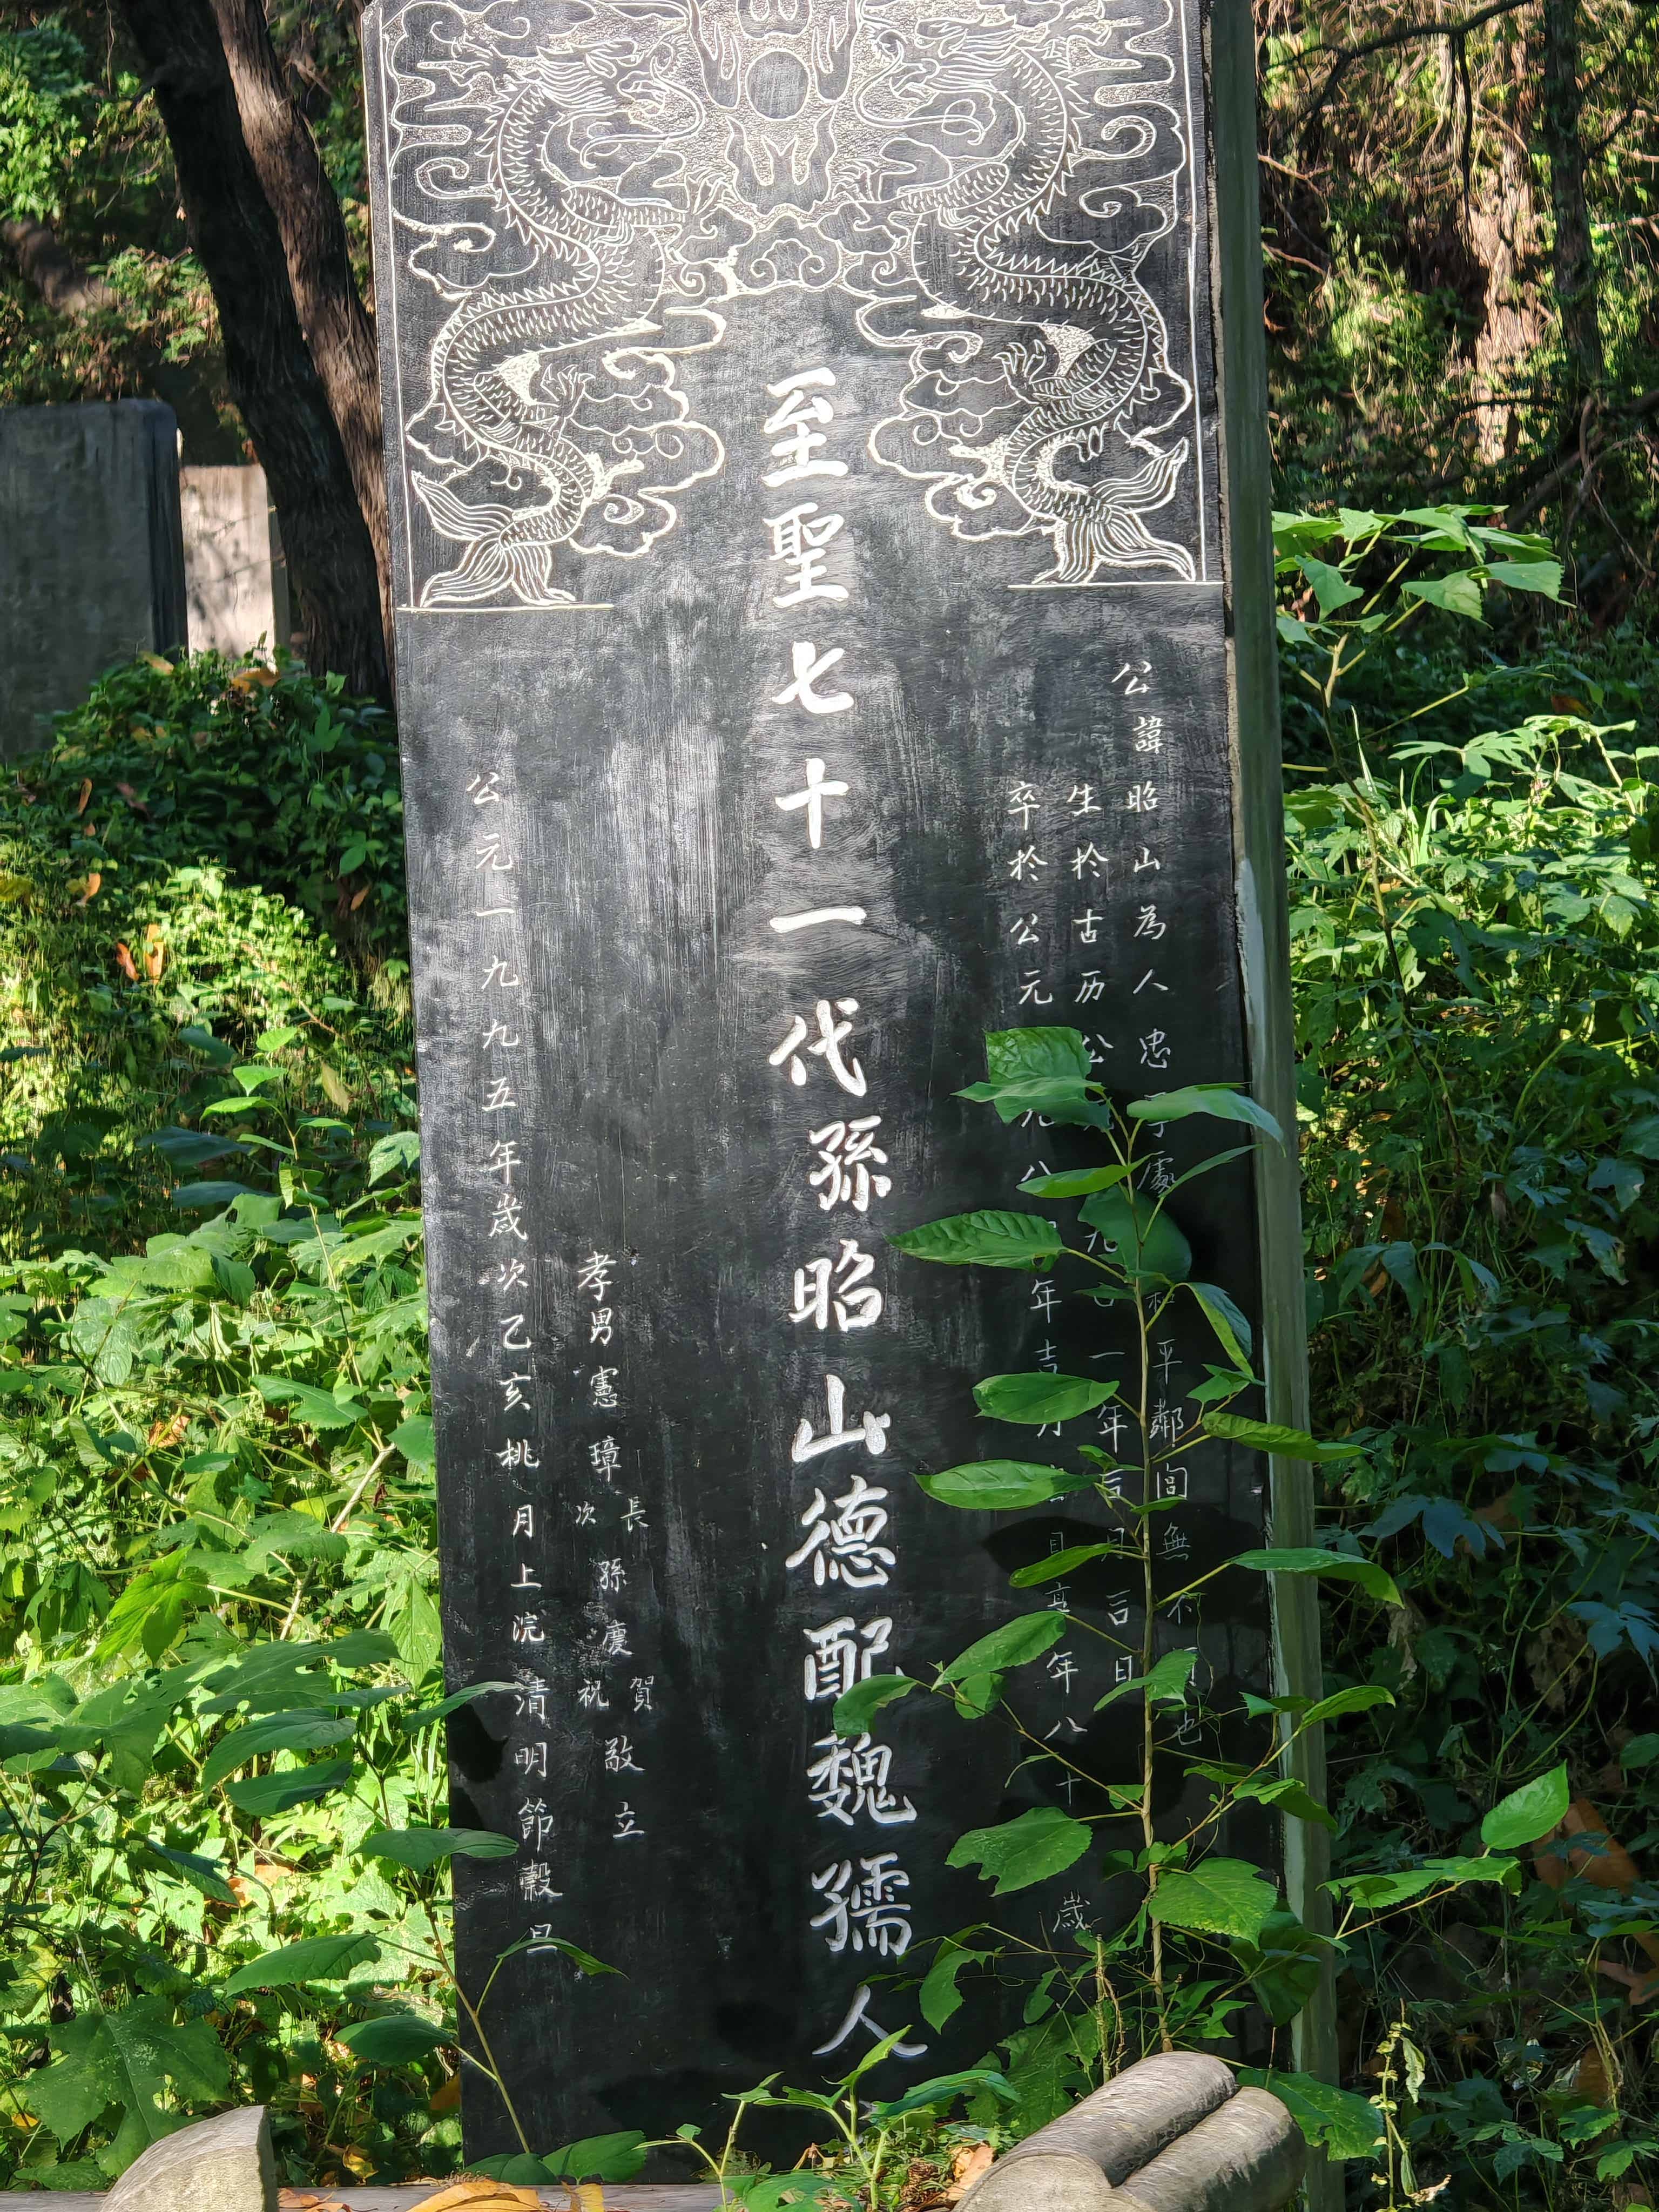 公諱昭山為人忠 處 平鄰閭無不 也
生於古历公 九 一年 月 日
卒於公元 八 年 享年八十 歲
至聖七十一代孫昭山德配魏孺人
長
孝男憲璋 孫慶 敬立
次
賀
祝
公元一九九五年歲次乙亥桃月上浣清明節穀旦